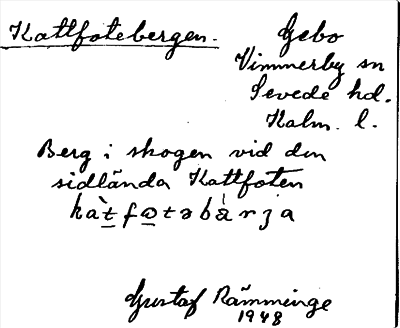 Kattfotebergen.
Gebo
Vimmerby sn
Sevede hd.
Kalm. l.
Berg i skogen vid den
sidlända Kattfoten
Gustaf Rämminge
1948